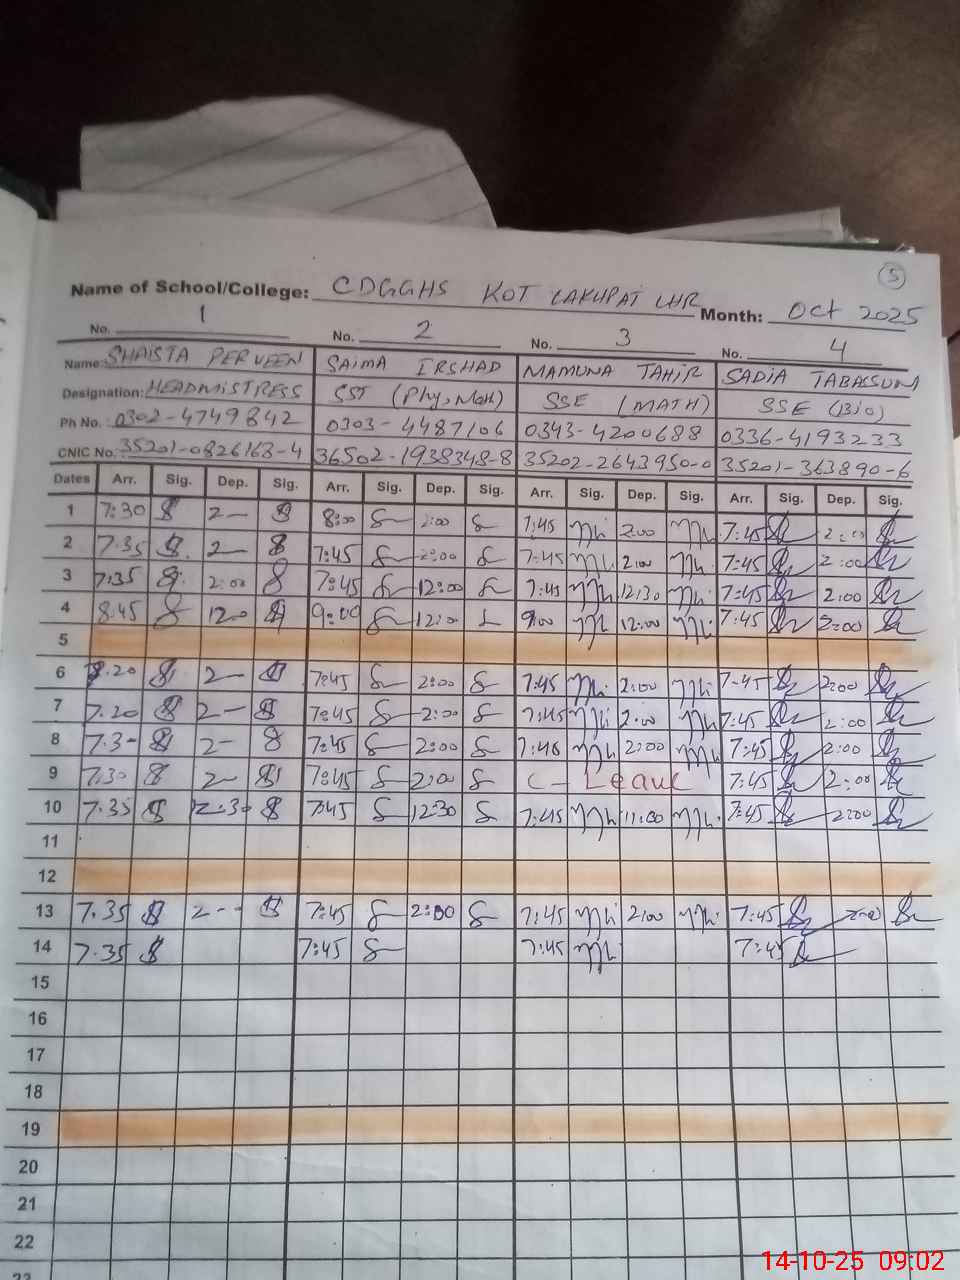 5
Name of School/College: CDGGHS KOT LAKHPAT LHR Month: Oct 2025
No. 1 No. 2 No. 3 No. 4
Name: SHAISTA PERVEEN SAIMA IRSHAD MAMUNA TAHIR SADIA TABASSUM
Designation: HEADMISTRESS SST (Phy, Math) SSE (MATH) SSE (Bio)
Ph No. 0302-4749842 0303-4487106 0343-4200688 0336-4193233
CNIC No. 35201-0826163-4 36502-1938348-8 35202-2643950-0 35201-363890-6
Dates Arr. Sig. Dep. Sig. Arr. Sig. Dep. Sig. Arr. Sig. Dep. Sig. Arr. Sig. Dep. Sig.
1 7:30 2- 8:00 2:00 7:45 2:00 7:45 2:00
2 7.35 2- 7:45 2:00 7:45 2:00 7:45 2:00
3 7:35 2:00 7:45 12:00 7:45 12:30 7:45 2:00
4 8.45 12.0 9:00 12:00 9:00 12:00 7:45 2:00
5
6 8.20 2- 7:45 2:00 7:45 2:00 7:45 2:00
7 7.20 2- 7:45 2:00 7:45 2:00 7:45 2:00
8 7.3- 2- 7:45 2:00 7:46 2:00 7:45 2:00
9 7.30 2- 7:45 2:00 C-Leave 7:45 2:00
10 7.35 2:30 7:45 12:30 7:45 11:00 7:45 2:00
11
12
13 7.35 2-- 7:45 2:00 7:45 2:00 7:45 2:00
14 7.35 7:45 7:45 7:45
15
16
17
18
19
20
21
22
23
14-10-25 09:02